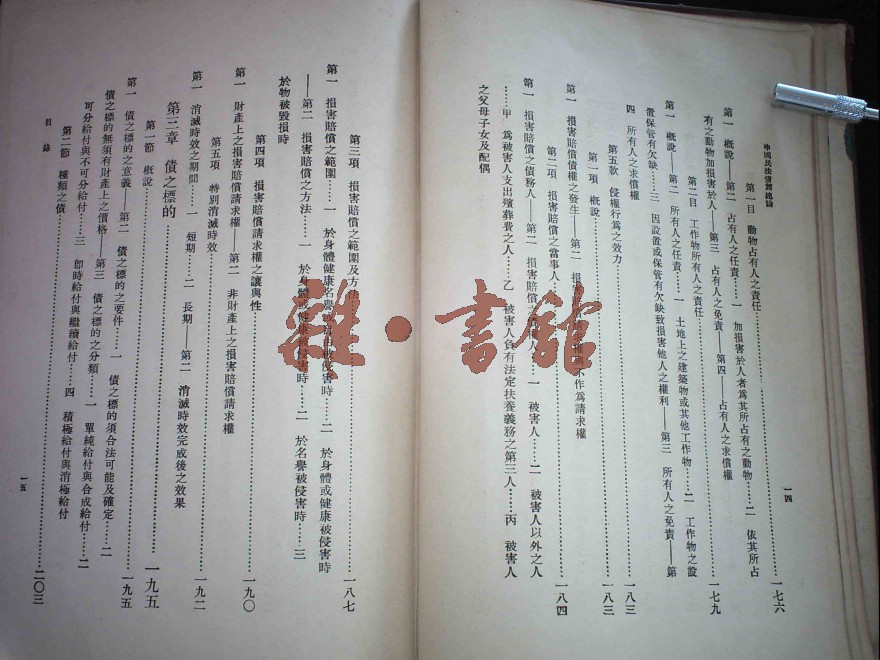 中國民法債篇總論
一四
第一目 動物占有人之責任……一七六
第一 概說——第二 占有人之任責……一 加損害於人者為其所占有之動物……二 依其所占
有之動物加損害於人——第三 占有人之免責——第四——占有人之求償權
第二目 工作物所有人之責任……一七九
第一 概說——第二 所有人之任責……一 土地上之建築物或其他工作物……二 工作物之設
置保管有欠缺……三 因設置或保管有欠缺致損害他人之權利——第三 所有人之免責——第
四 所有人之求償權
第五款 侵權行爲之效力……一八三
第一項 概說……一八三
第一 損害賠償債權之發生——第二 損害 不作爲請求權
第二項 損害賠償之當事人……一八四
第一 損害賠償之債務人——第二 損害賠償之 人……一 被害人……二 被害人以外之人
……甲 爲被害人支出殯葬費之人……乙 被害人負有法定扶養義務之第三人……丙 被害人
之父母子女及配偶
第三項 損害賠償之範圍及方法……一八七
第一 損害賠償之範圍……一 於身體健康名譽或自由被侵害時……二 於身體或健康被侵害時
——第二 損害賠償之方法……一 於身體或健康被侵害時……二 於名譽被侵害時……三
於物被毀損時
第四項 損害賠償請求權之讓與性……一九〇
第一 財產上之損害賠償請求權——第二 非財產上之損害賠償請求權
第五項 特別消滅時效……一九二
第一 消滅時效之期間……一 短期……二 長期——第二 消滅時效完成後之效果
第三章 債之標的……一九五
第一節 概說……一九五
第一 債之標的之意義——第二 債之標的之要件……一 債之標的須合法可能及確定……二
債之標的無須有財產上之價格——第三 債之標的之分類……一 單純給付與合成給付……二
可分給付與不可分給付……三 卽時給付與繼續給付……四 積極給付與消極給付
第二節 種類之債……二〇三
目錄
一五
雜·書館